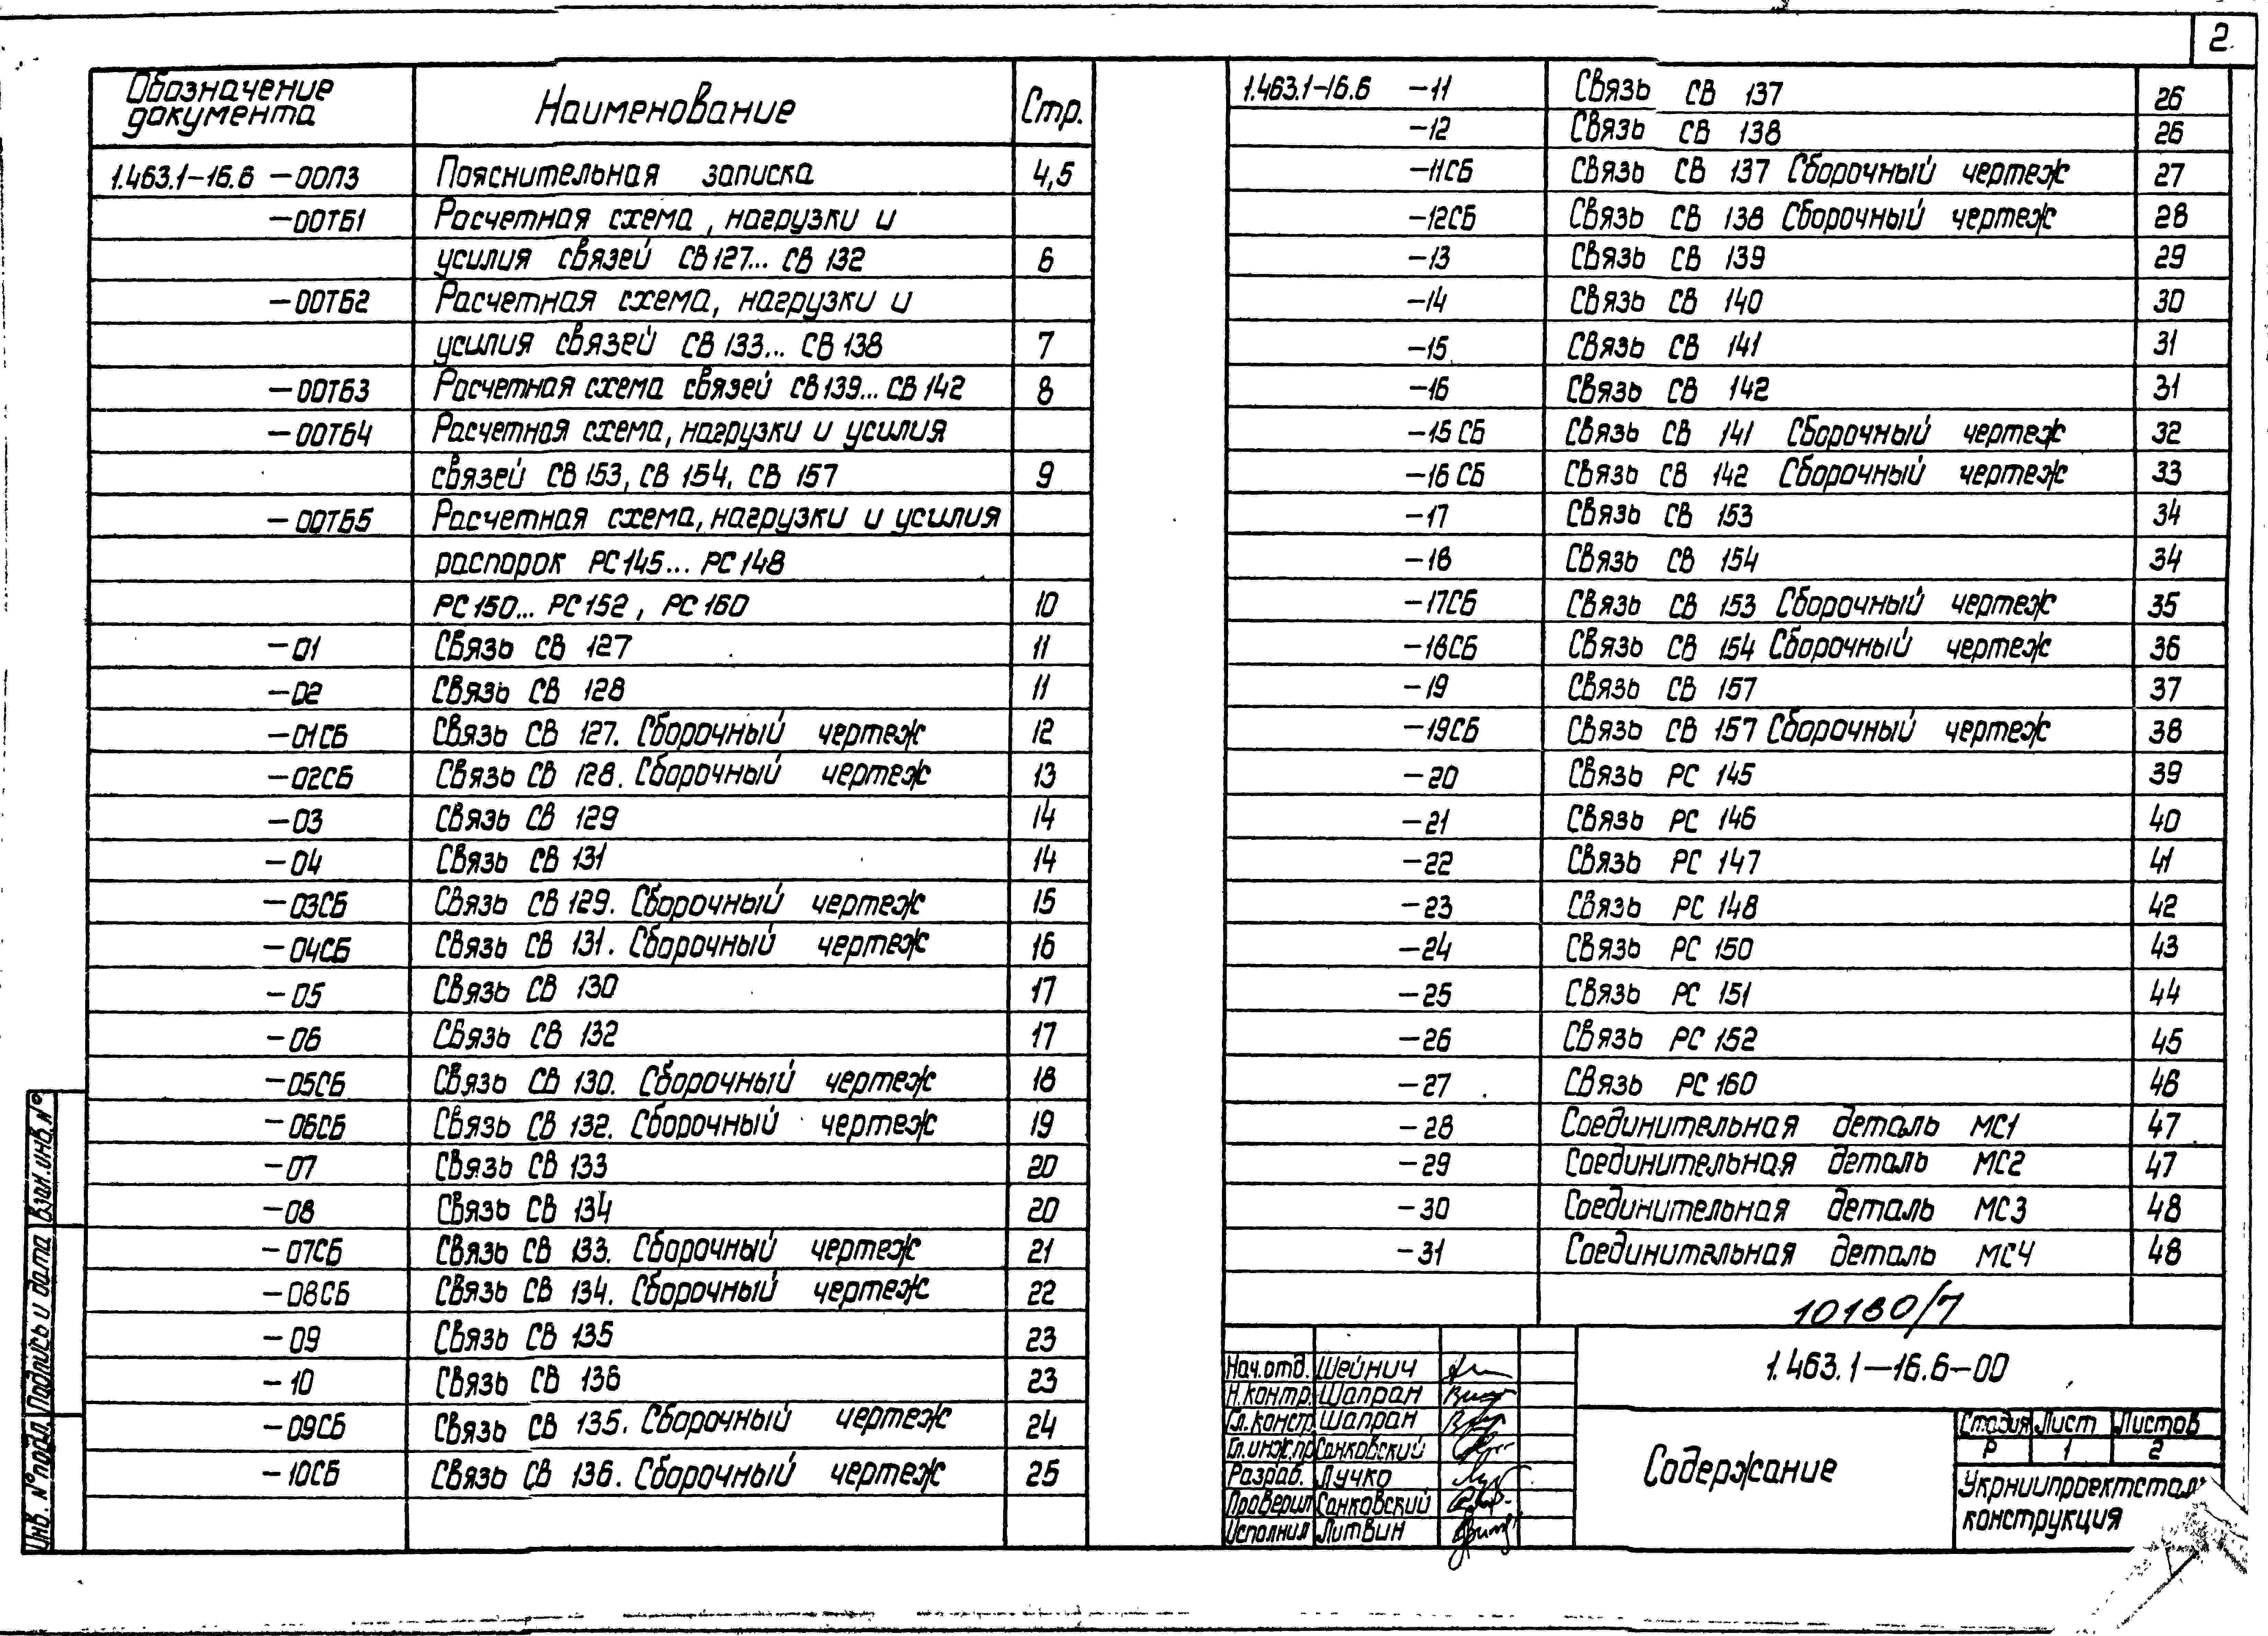 2
Обозначение документа Наименование Стр.
1.463.1-16.6 -00ПЗ Пояснительная записка 4,5
-00ТБ1 Расчетная схема, нагрузки и
усилия связей СВ127... СВ 132 6
-00ТБ2 Расчетная схема, нагрузки и
усилия связей СВ 133... СВ 138 7
-00ТБ3 Расчетная схема связей СВ139... СВ 142 8
-00ТБ4 Расчетная схема, нагрузки и усилия
связей СВ 153, СВ 154, СВ 157 9
-00ТБ5 Расчетная схема, нагрузки и усилия
распорок РС145... РС 148
РС 150... РС 152, РС 160 10
-01 Связь СВ 127 11
-02 Связь СВ 128 11
-01СБ Связь СВ 127. Сборочный чертеж 12
-02СБ Связь СВ 128. Сборочный чертеж 13
-03 Связь СВ 129 14
-04 Связь СВ 131 14
-03СБ Связь СВ 129. Сборочный чертеж 15
-04СБ Связь СВ 131. Сборочный чертеж 16
-05 Связь СВ 130 17
-06 Связь СВ 132 17
-05СБ Связь СВ 130. Сборочный чертеж 18
-06СБ Связь СВ 132. Сборочный чертеж 19
-07 Связь СВ 133 20
-08 Связь СВ 134 20
-07СБ Связь СВ 133. Сборочный чертеж 21
-08СБ Связь СВ 134. Сборочный чертеж 22
-09 Связь СВ 135 23
-10 Связь СВ 136 23
-09СБ Связь СВ 135. Сборочный чертеж 24
-10СБ Связь СВ 136. Сборочный чертеж 25
1.463.1-16.6 -11 Связь СВ 137 26
-12 Связь СВ 138 26
-11СБ Связь СВ 137 Сборочный чертеж 27
-12СБ Связь СВ 138 Сборочный чертеж 28
-13 Связь СВ 139 29
-14 Связь СВ 140 30
-15 Связь СВ 141 31
-16 Связь СВ 142 31
-15 СБ Связь СВ 141 Сборочный чертеж 32
-16 СБ Связь СВ 142 Сборочный чертеж 33
-17 Связь СВ 153 34
-18 Связь СВ 154 34
-17СБ Связь СВ 153 Сборочный чертеж 35
-18СБ Связь СВ 154 Сборочный чертеж 36
-19 Связь СВ 157 37
-19СБ Связь СВ 157 Сборочный чертеж 38
-20 Связь РС 145 39
-21 Связь РС 146 40
-22 Связь РС 147 41
-23 Связь РС 148 42
-24 Связь РС 150 43
-25 Связь РС 151 44
-26 Связь РС 152 45
-27 Связь РС 160 46
-28 Соединительная деталь МС1 47
-29 Соединительная деталь МС2 47
-30 Соединительная деталь МС3 48
-31 Соединительная деталь МС4 48
10180/7
1.463.1-16.6-00
Нач.отд. Шейнич
Н.контр. Шапран
Гл.констр. Шапран
Гл.инж.пр Санковский
Разраб. Лучко
Проверил Санковский
Исполнил Литвин
Содержание
Стадия Лист Листов
Р 1 2
Укрниипроектсталь
конструкция
Инв. N°подл. Подпись и дата Взам.инв.N°